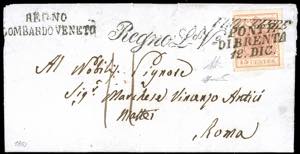 REGNO
LOMBARDO VENETO
Regno L. V.
PONTE
DI BRENTA
12. DIC.
15 CENTES
Al Nobile Signore
Sig.r Marchese Vinanzo Antici
Mattei
Roma